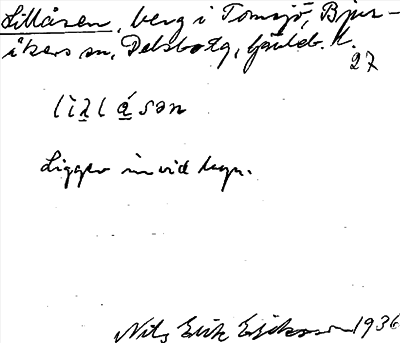 Lillåsen, berg i Tomsjö, Bjur-
åkers sn, Delsbotg, Gävleb. l.
27
lìl̥l ǻ sən
Ligger invid byn.
Nils Erik Eriksson 1936